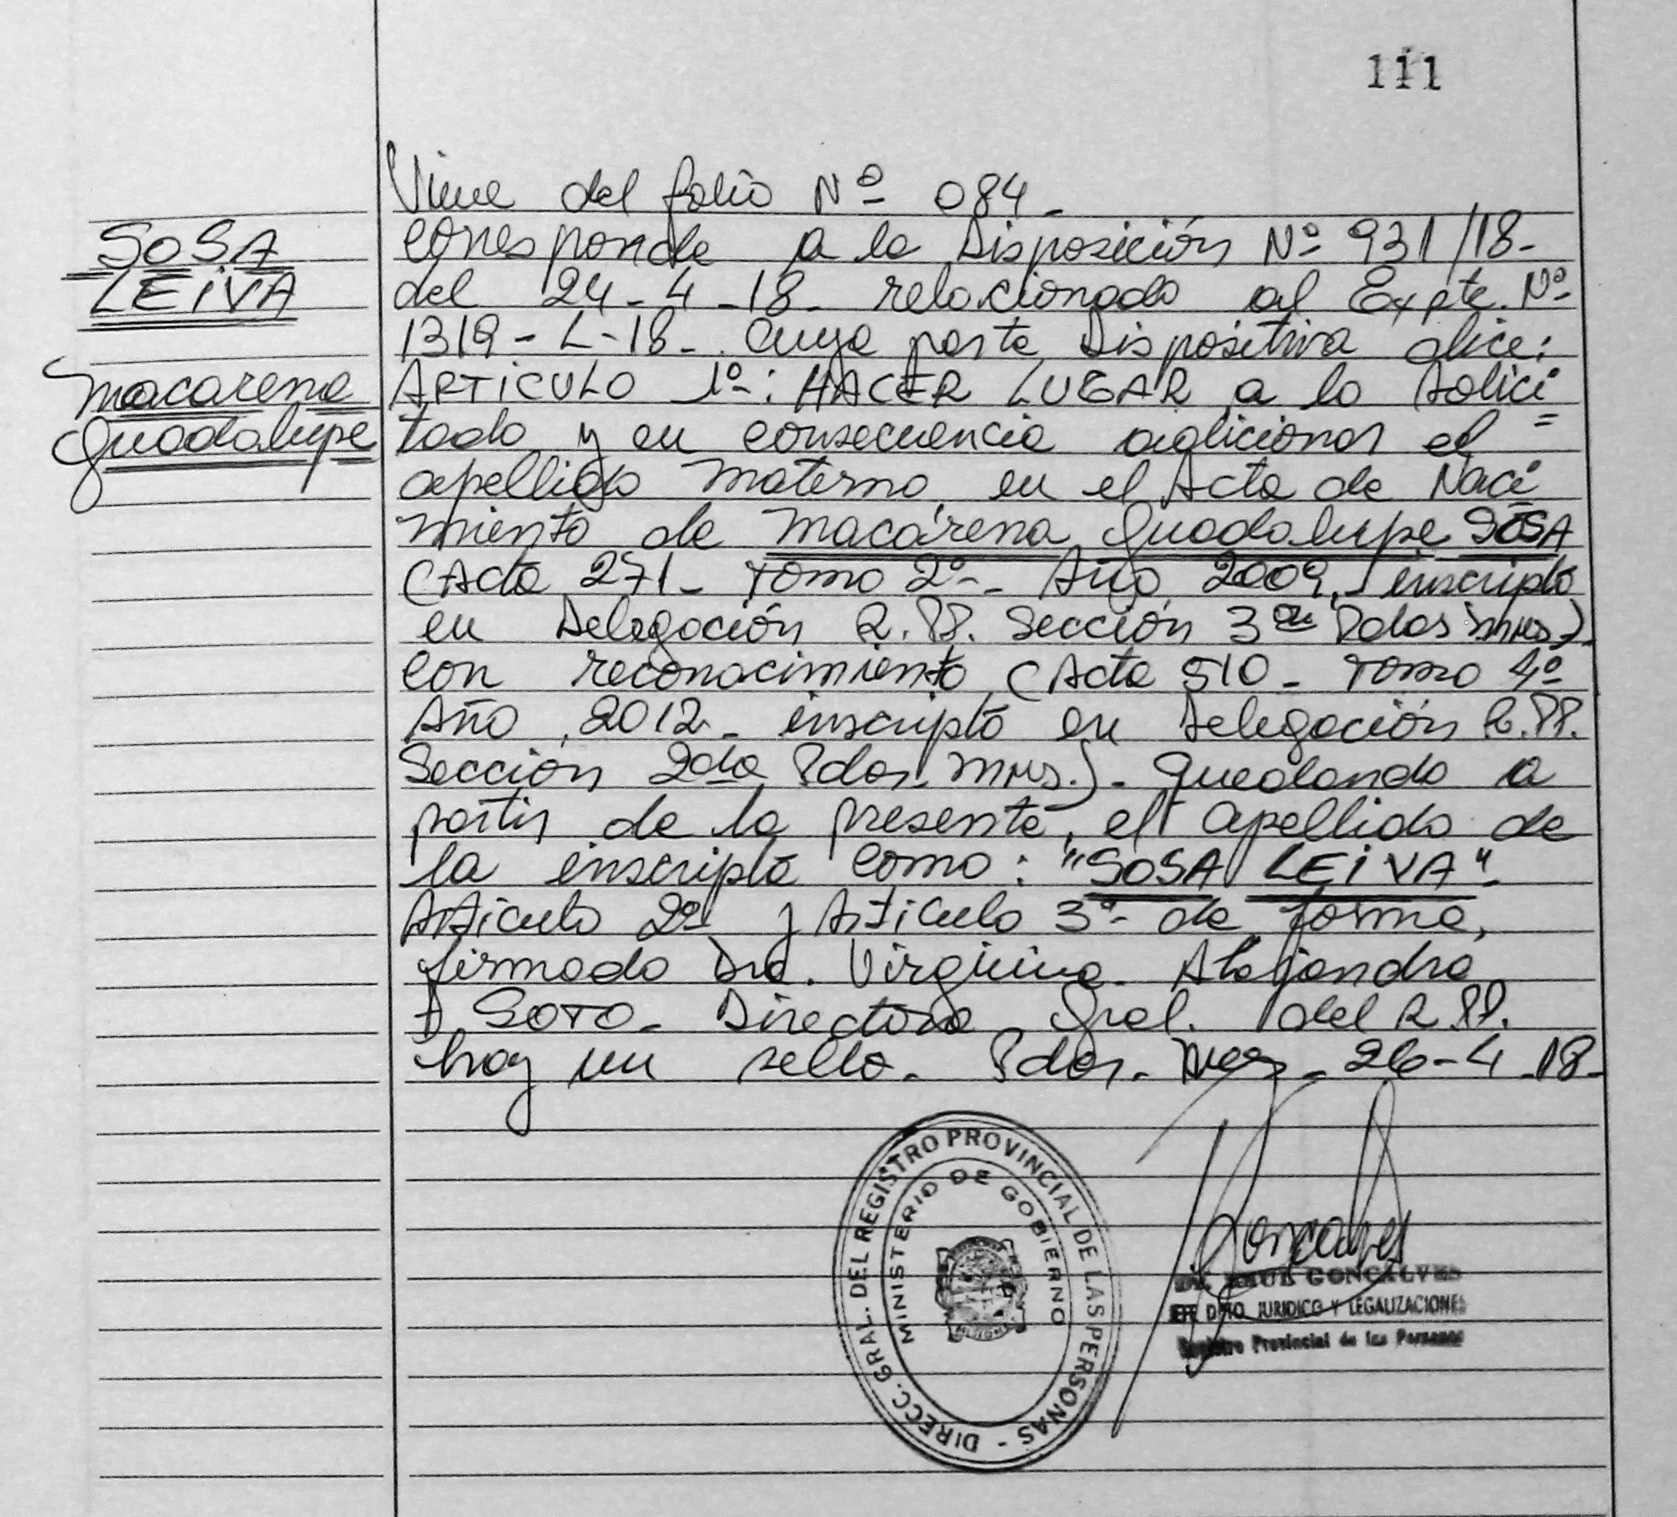 111
Viene del folio Nº 084-
SOSA
LEIVA
Macarena
Guadalupe
corresponde a la Disposición Nº 931/18-
del 24-4-18- relacionado al Expte. Nº
1319-L-18- cuya parte Dispositiva dice:
ARTICULO 1º: HACER LUGAR a lo solici
tado y en consecuencia adicionar el
apellido Materno en el Acta de Naci
miento de Macarena Guadalupe SOSA
(Acta 271- Tomo 2º- Año 2009, inscripta
en Delegación R.PP. Sección 3ra Pdas Mnes)
con reconocimiento (Acta 510- Tomo 4º
Año 2012- inscripto en Delegación R.PP.
Sección 2da Pdas. Mnes.)- quedando a
partir de la presente, el apellido de
la inscripta como: "SOSA LEIVA"-
Articulo 2º y Articulo 3º- de forma,
firmado Dra. Virginia Alejandra
SOTO- Directora Gral. del R.PP.
hay un sello- Pdas. Mnes- 26-4-18-
DIRECC. GRAL. DEL REGISTRO PROVINCIAL DE LAS PERSONAS -
MINISTERIO DE GOBIERNO
GONCALVES
DPTO. JURIDICO Y LEGALIZACIONES
Registro Provincial de las Personas